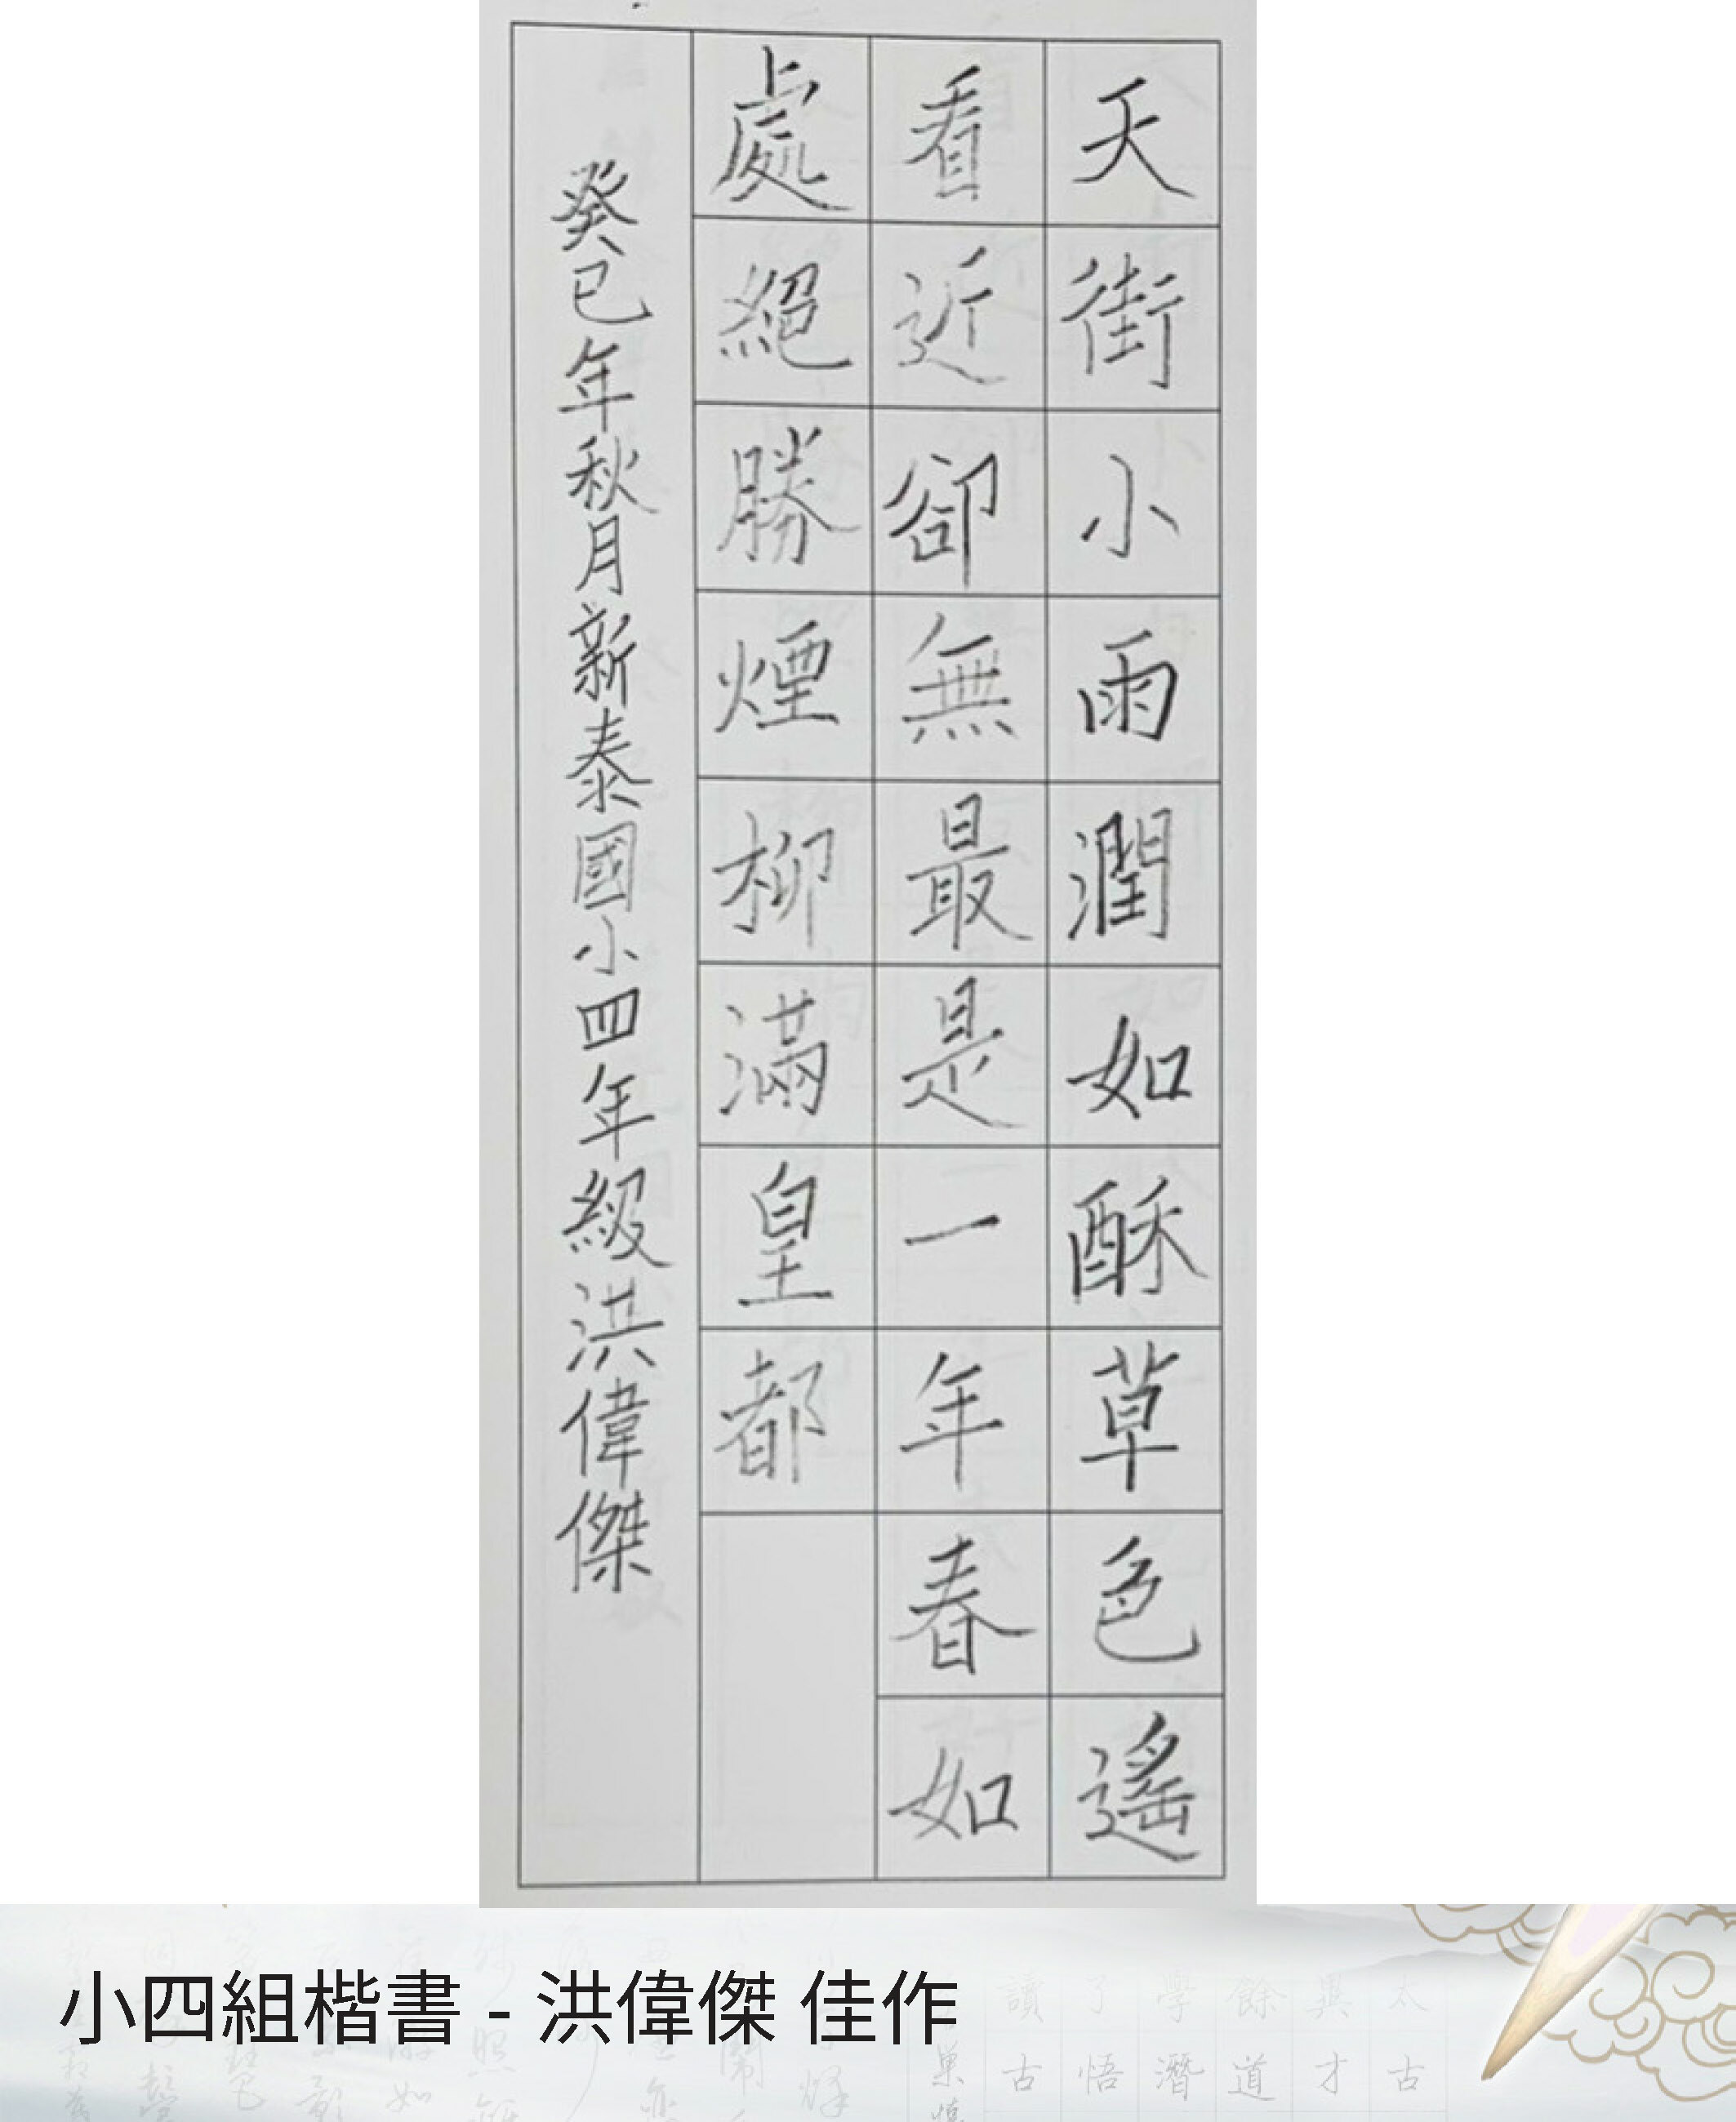 天街小雨潤如酥草色遙
看近卻無最是一年春如
處絕勝煙柳滿皇都
癸巳年秋月新泰國小四年級洪偉傑
小四組楷書 - 洪偉傑 佳作
太與餘字了讀
古才道潛悟古